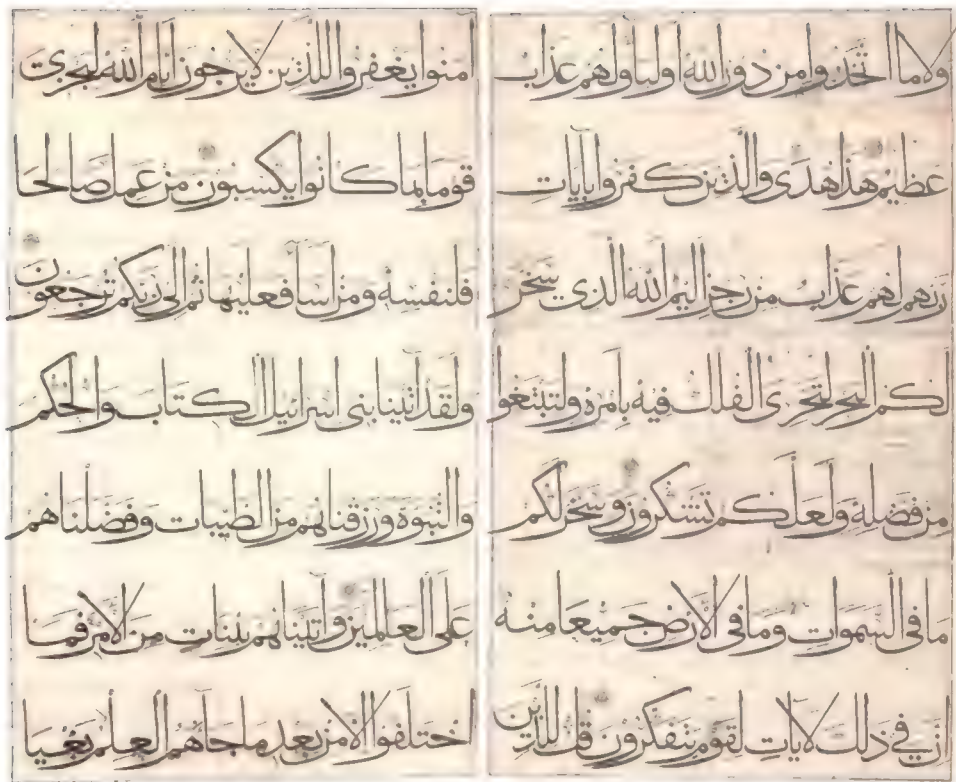 ولا ما اتخذوا من دون الله اوليا ولهم عذاب
عظيم هذا هدى والذين كفروا بايات
ربهم لهم عذاب من رجز اليم الله الذي سخر
لكم البحر لتجرى الفلك فيه بامره ولتبتغوا
من فضله ولعلكم تشكرون وسخر لكم
ما في السموات وما في الارض جميعا منه
ان في ذلك لايات لقوم يتفكرون قل للذين
امنوا يغفروا للذين لا يرجون ايام الله ليجزى
قوما بما كانوا يكسبون من عمل صالحا
فلنفسه ومن اسا فعليها ثم الى ربكم ترجعون
ولقد آتينا بنى اسرائيل الكتاب والحكم
والنبوة ورزقناهم من الطيبات وفضلناهم
على العالمين وآتيناهم بينات من الامر فما
اختلفوا الا من بعد ما جاهم العلم بغيا